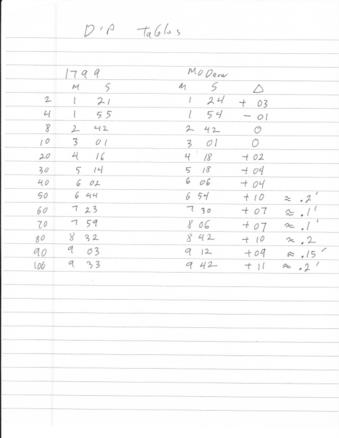 Dip Tables
1799 Modern
M S M S Δ
2 1 21 1 24 + 03
4 1 55 1 54 - 01
8 2 42 2 42 0
10 3 01 3 01 0
20 4 16 4 18 +02
30 5 14 5 18 +04
40 6 02 6 06 +04
50 6 44 6 54 +10 ≈ .2'
60 7 23 7 30 +07 ≈ .1'
70 7 59 8 06 +07 ≈ .1'
80 8 32 8 42 +10 ≈ .2
90 9 03 9 12 +09 ≈ .15'
100 9 33 9 42 +11 ≈ .2'